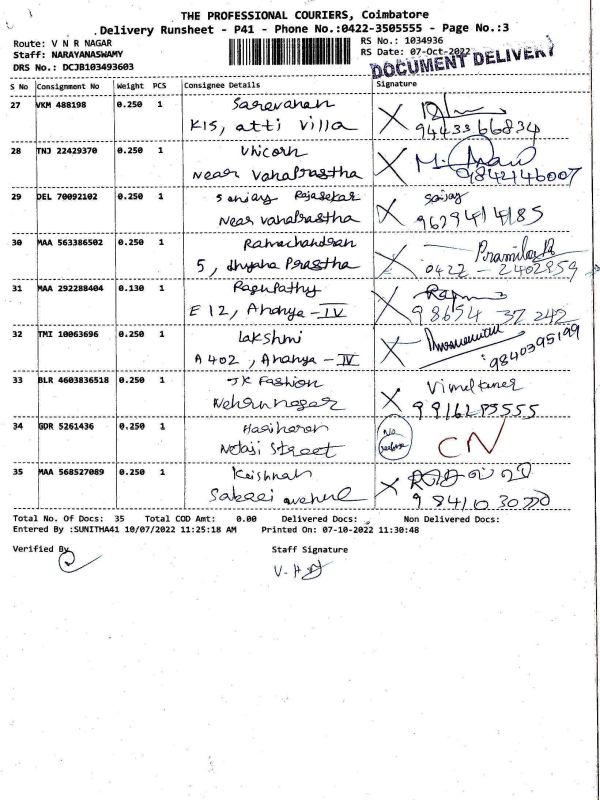 THE PROFESSIONAL COURIERS, Coimbatore
Delivery Runsheet - P41 - Phone No.:0422-3505555 - Page No.:3
Route: V N R NAGAR
RS No.: 1034936
Staff: NARAYANASWAMY
RS Date: 07-Oct-2022
DRS No.: DCJB103493603
DOCUMENT DELIVERY
S No Consignment No Weight PCS Consignee Details Signature
27 VKM 488198 0.250 1 Saravanan
K15, atti villa 9443366834
28 TNJ 22429370 0.250 1 Unicorn
Near VanaPrastha 9842146007
29 DEL 70092102 0.250 1 Sanjay Rajasekar Sanjay
Near VanaPrastha 9629414185
30 MAA 563386502 0.250 1 Ramachandran
5, dhyana Prastha 0422 - 2402859
31 MAA 292288404 0.130 1 Ragupathy
E 12, Ananya - IV 98654 37 242
32 TMI 10063696 0.250 1 Lakshmi
A 402, Ananya - IV 9840395199
33 BLR 4603836518 0.250 1 JK Fashion
Nehru nagar
34 GDR 5261436 0.250 1 Hariharan No
Netaji Street CN
35 MAA 568527089 0.250 1 Krishnan
Total No. Of Docs: 35 Total COD Amt: 0.00 Delivered Docs: Non Delivered Docs:
Entered By :SUNITHA41 10/07/2022 11:25:18 AM Printed On: 07-10-2022 11:30:48
Verified By
Staff Signature